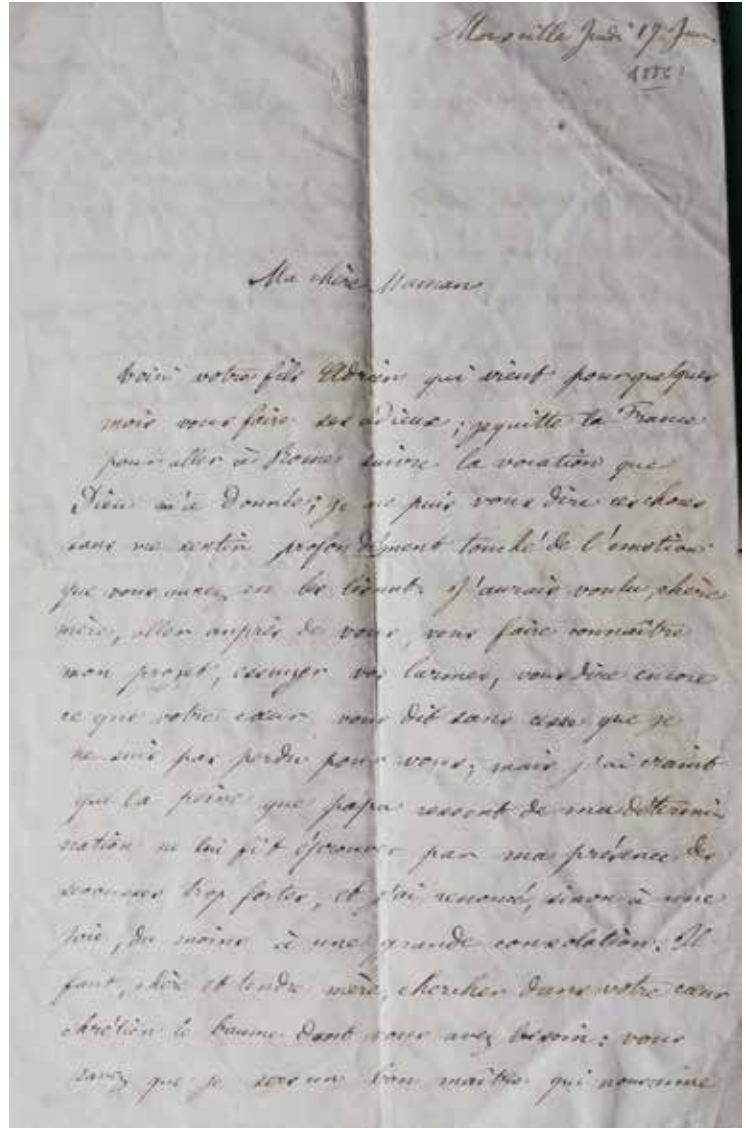 Marseille Jeudi 19 Juin
Ma chère Maman
Voici votre fils Adrien qui vient pour quelques
mois vous faire ses adieux ; je quitte la France
pour aller à Rome suivre la vocation que
Dieu m'a donnée ; je ne puis vous dire ces choses
sans me sentir profondément touché de l'émotion
que vous aurez en les lisant. J'aurais voulu, chère
mère, aller auprès de vous, vous faire connaître
mon projet, essuyer vos larmes, vous dire encore
ce que votre cœur vous dit sans cesse que je
ne suis pas perdu pour vous ; mais j'ai craint
que la peine que papa ressent de ma détermi
nation ne lui fît éprouver par ma présence des
secousses trop fortes, et j'ai renoncé, sinon à une
joie, du moins à une grande consolation. Il
faut, chère et tendre mère, chercher dans votre cœur
chrétien le baume dont vous avez besoin : vous
savez que je sers un bon maître qui